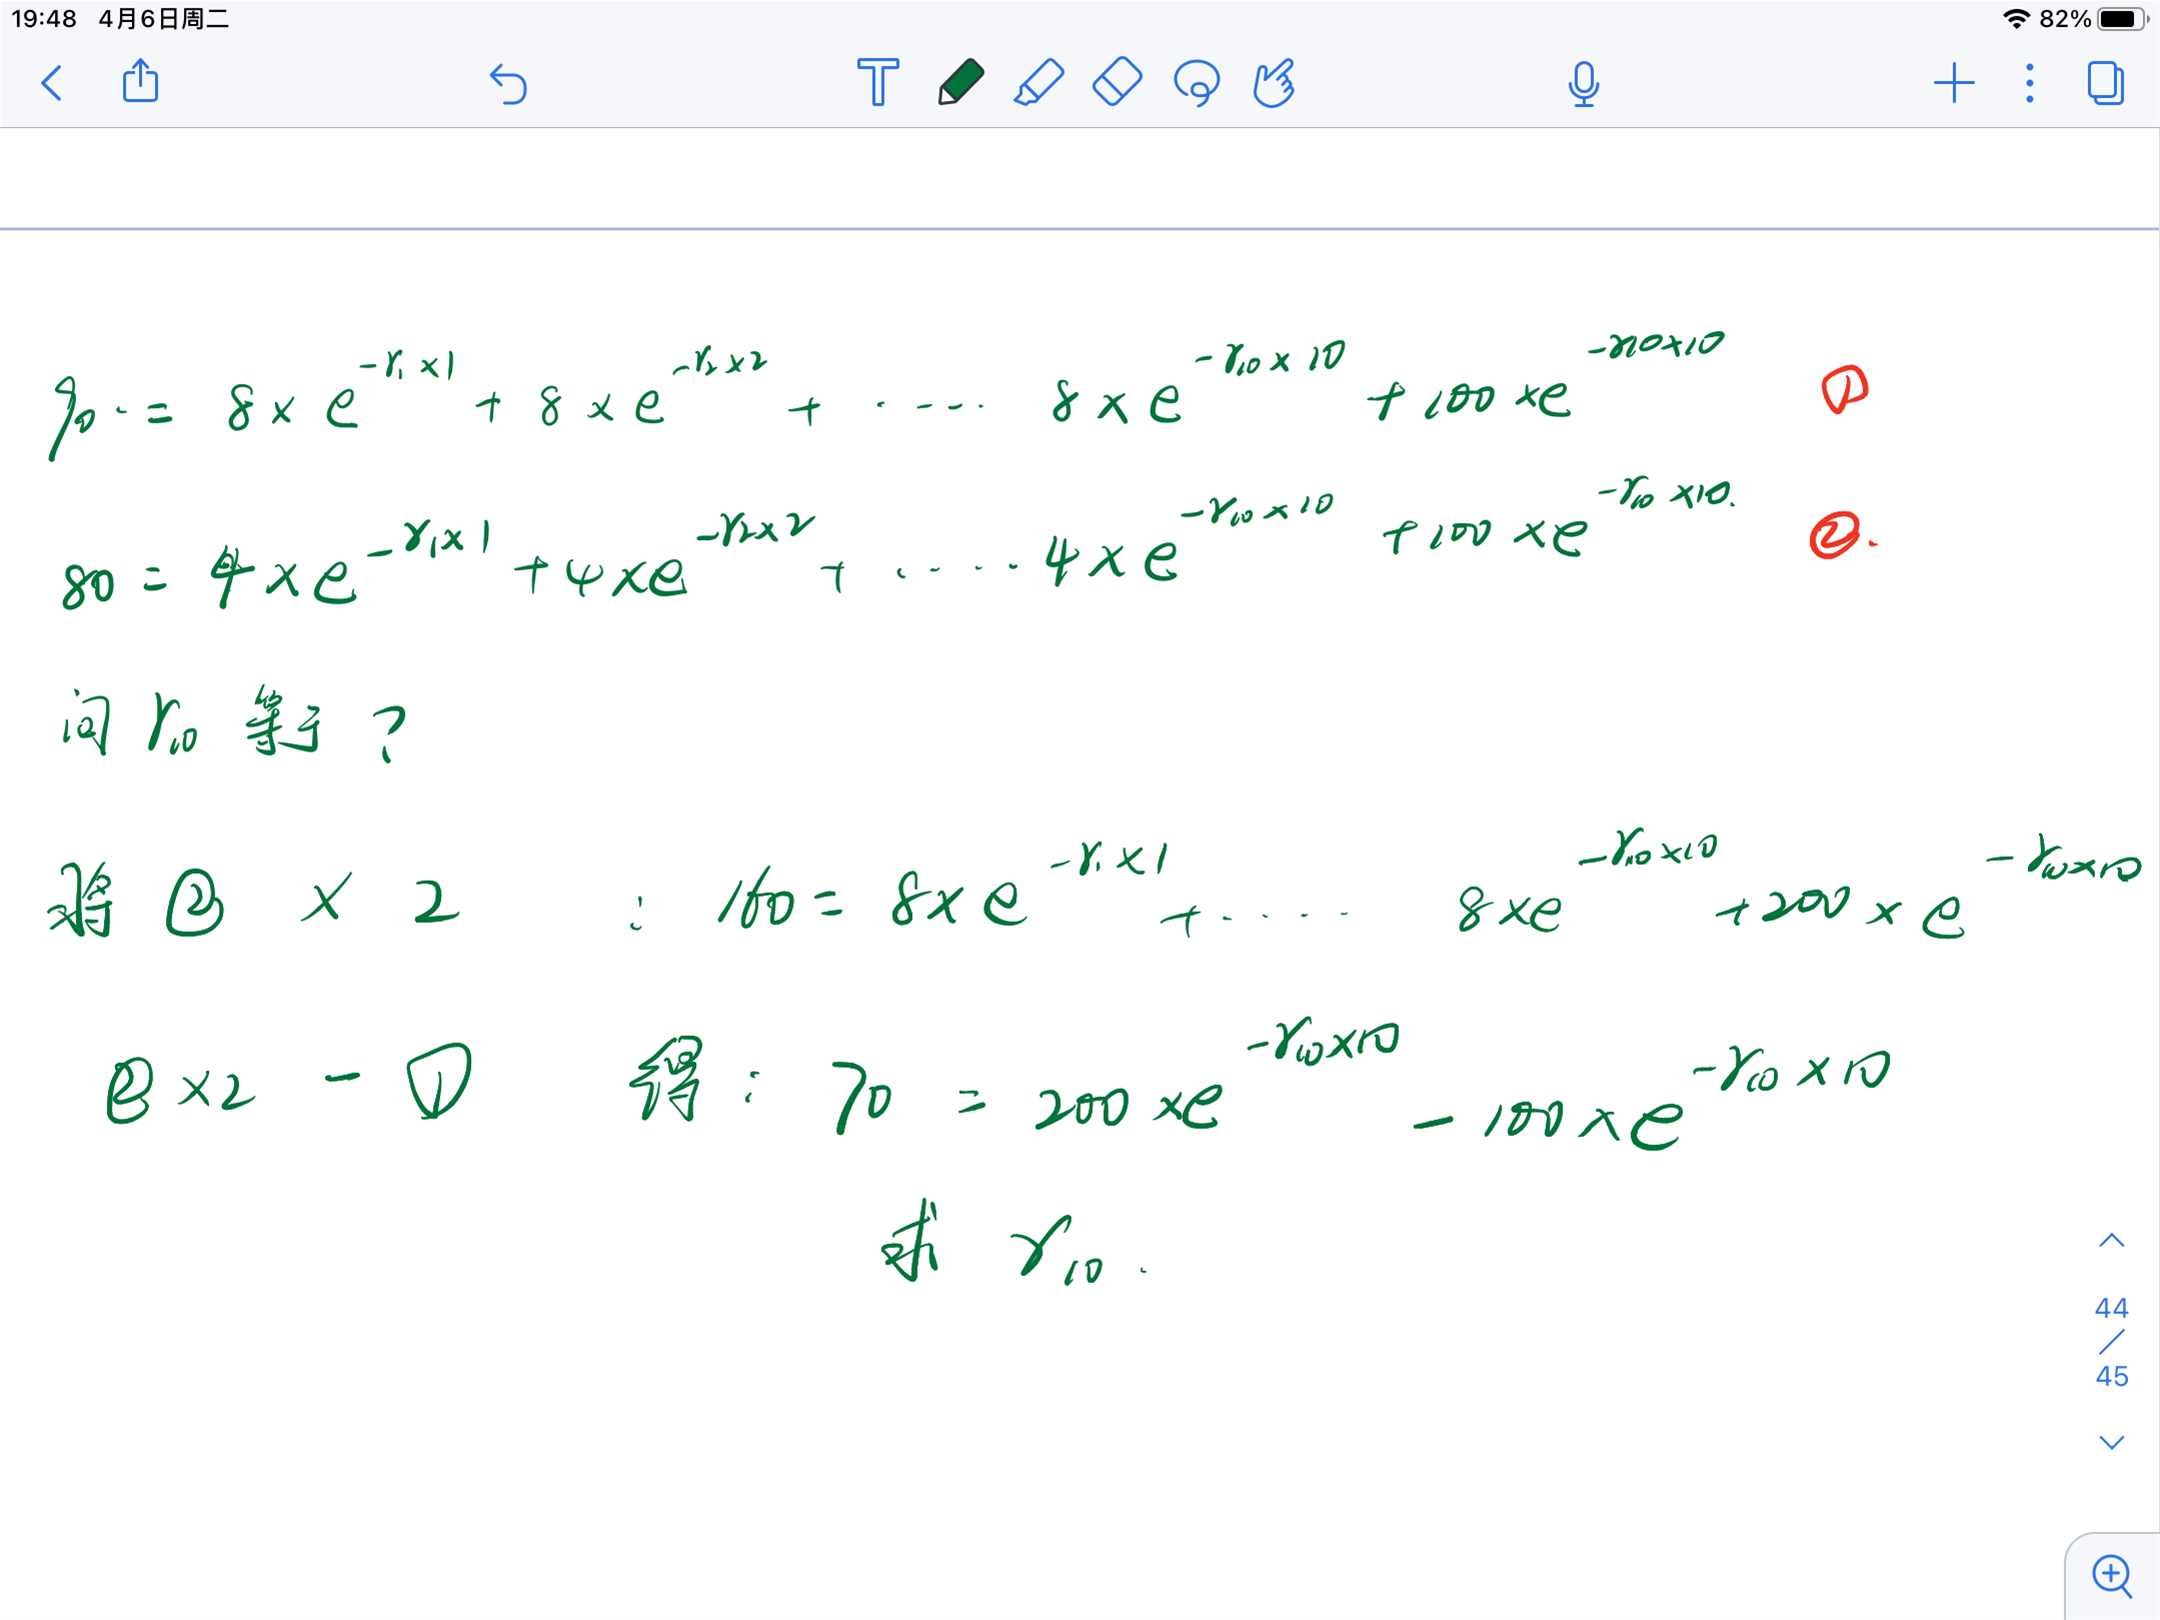 19:48 4月6日周二 82%
90 = 8×e^{-r₁×1} + 8×e^{-r₂×2} + ···· 8×e^{-r₁₀×10} + 100×e^{-r10×10} ①
80 = 4×e^{-r₁×1} + 4×e^{-r2×2} + ···· 4×e^{-r₁₀×10} + 100×e^{-r₁₀×10}. ②.
问 r₁₀ 等于 ?
将 ② × 2 : 160 = 8×e^{-r₁×1} + ···· 8×e^{-r₁₀×10} + 200×e^{-r₁₀×10}
②×2 - ① 得: 70 = 200×e^{-r₁₀×10} - 100×e^{-r₁₀×10}
求 r₁₀.
44
/
45